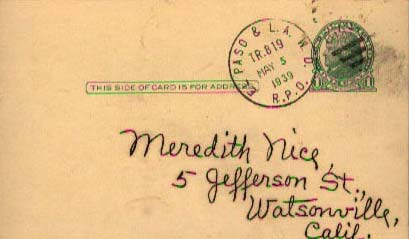 EL PASO & L.A. W.D.
TR.819
MAY 5
1939
R.P.O.
THIS SIDE OF CARD IS FOR ADDRESS
1 1
Meredith Nice,
5 Jefferson St.,
Watsonville,
Calif.